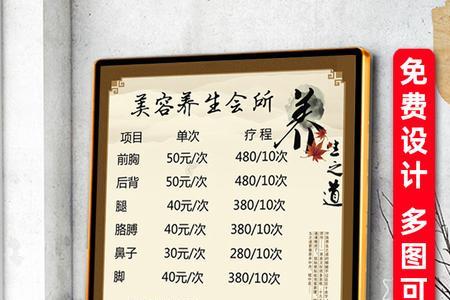 美容养生会所
项目 单次 疗程
前胸 50元/次 480/10次
后背 50元/次 480/10次
腿 40元/次 380/10次
胳膊 40元/次 380/10次
鼻子 30元/次 280/10次
脚 40元/次 380/10次
养
生之道
免费设计 多图可